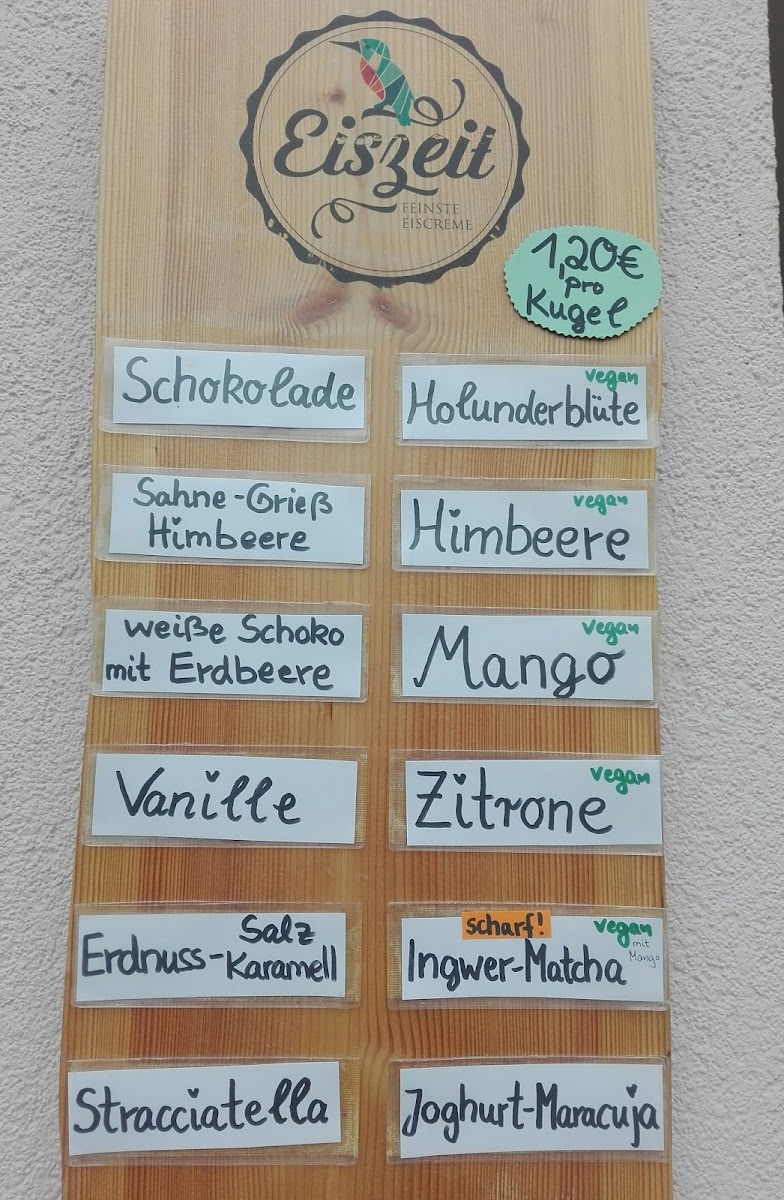 Eiszeit
FEINSTE
EISCREME
1,20€
pro
Kugel
Schokolade
vegan
Holunderblüte
Sahne-Grieß
Himbeere
vegan
Himbeere
weiße Schoko
mit Erdbeere
vegan
Mango
Vanille
vegan
Zitrone
Salz
Erdnuss-Karamell
scharf!
vegan
mit
Mango
Ingwer-Matcha
Stracciatella
Joghurt-Maracuja